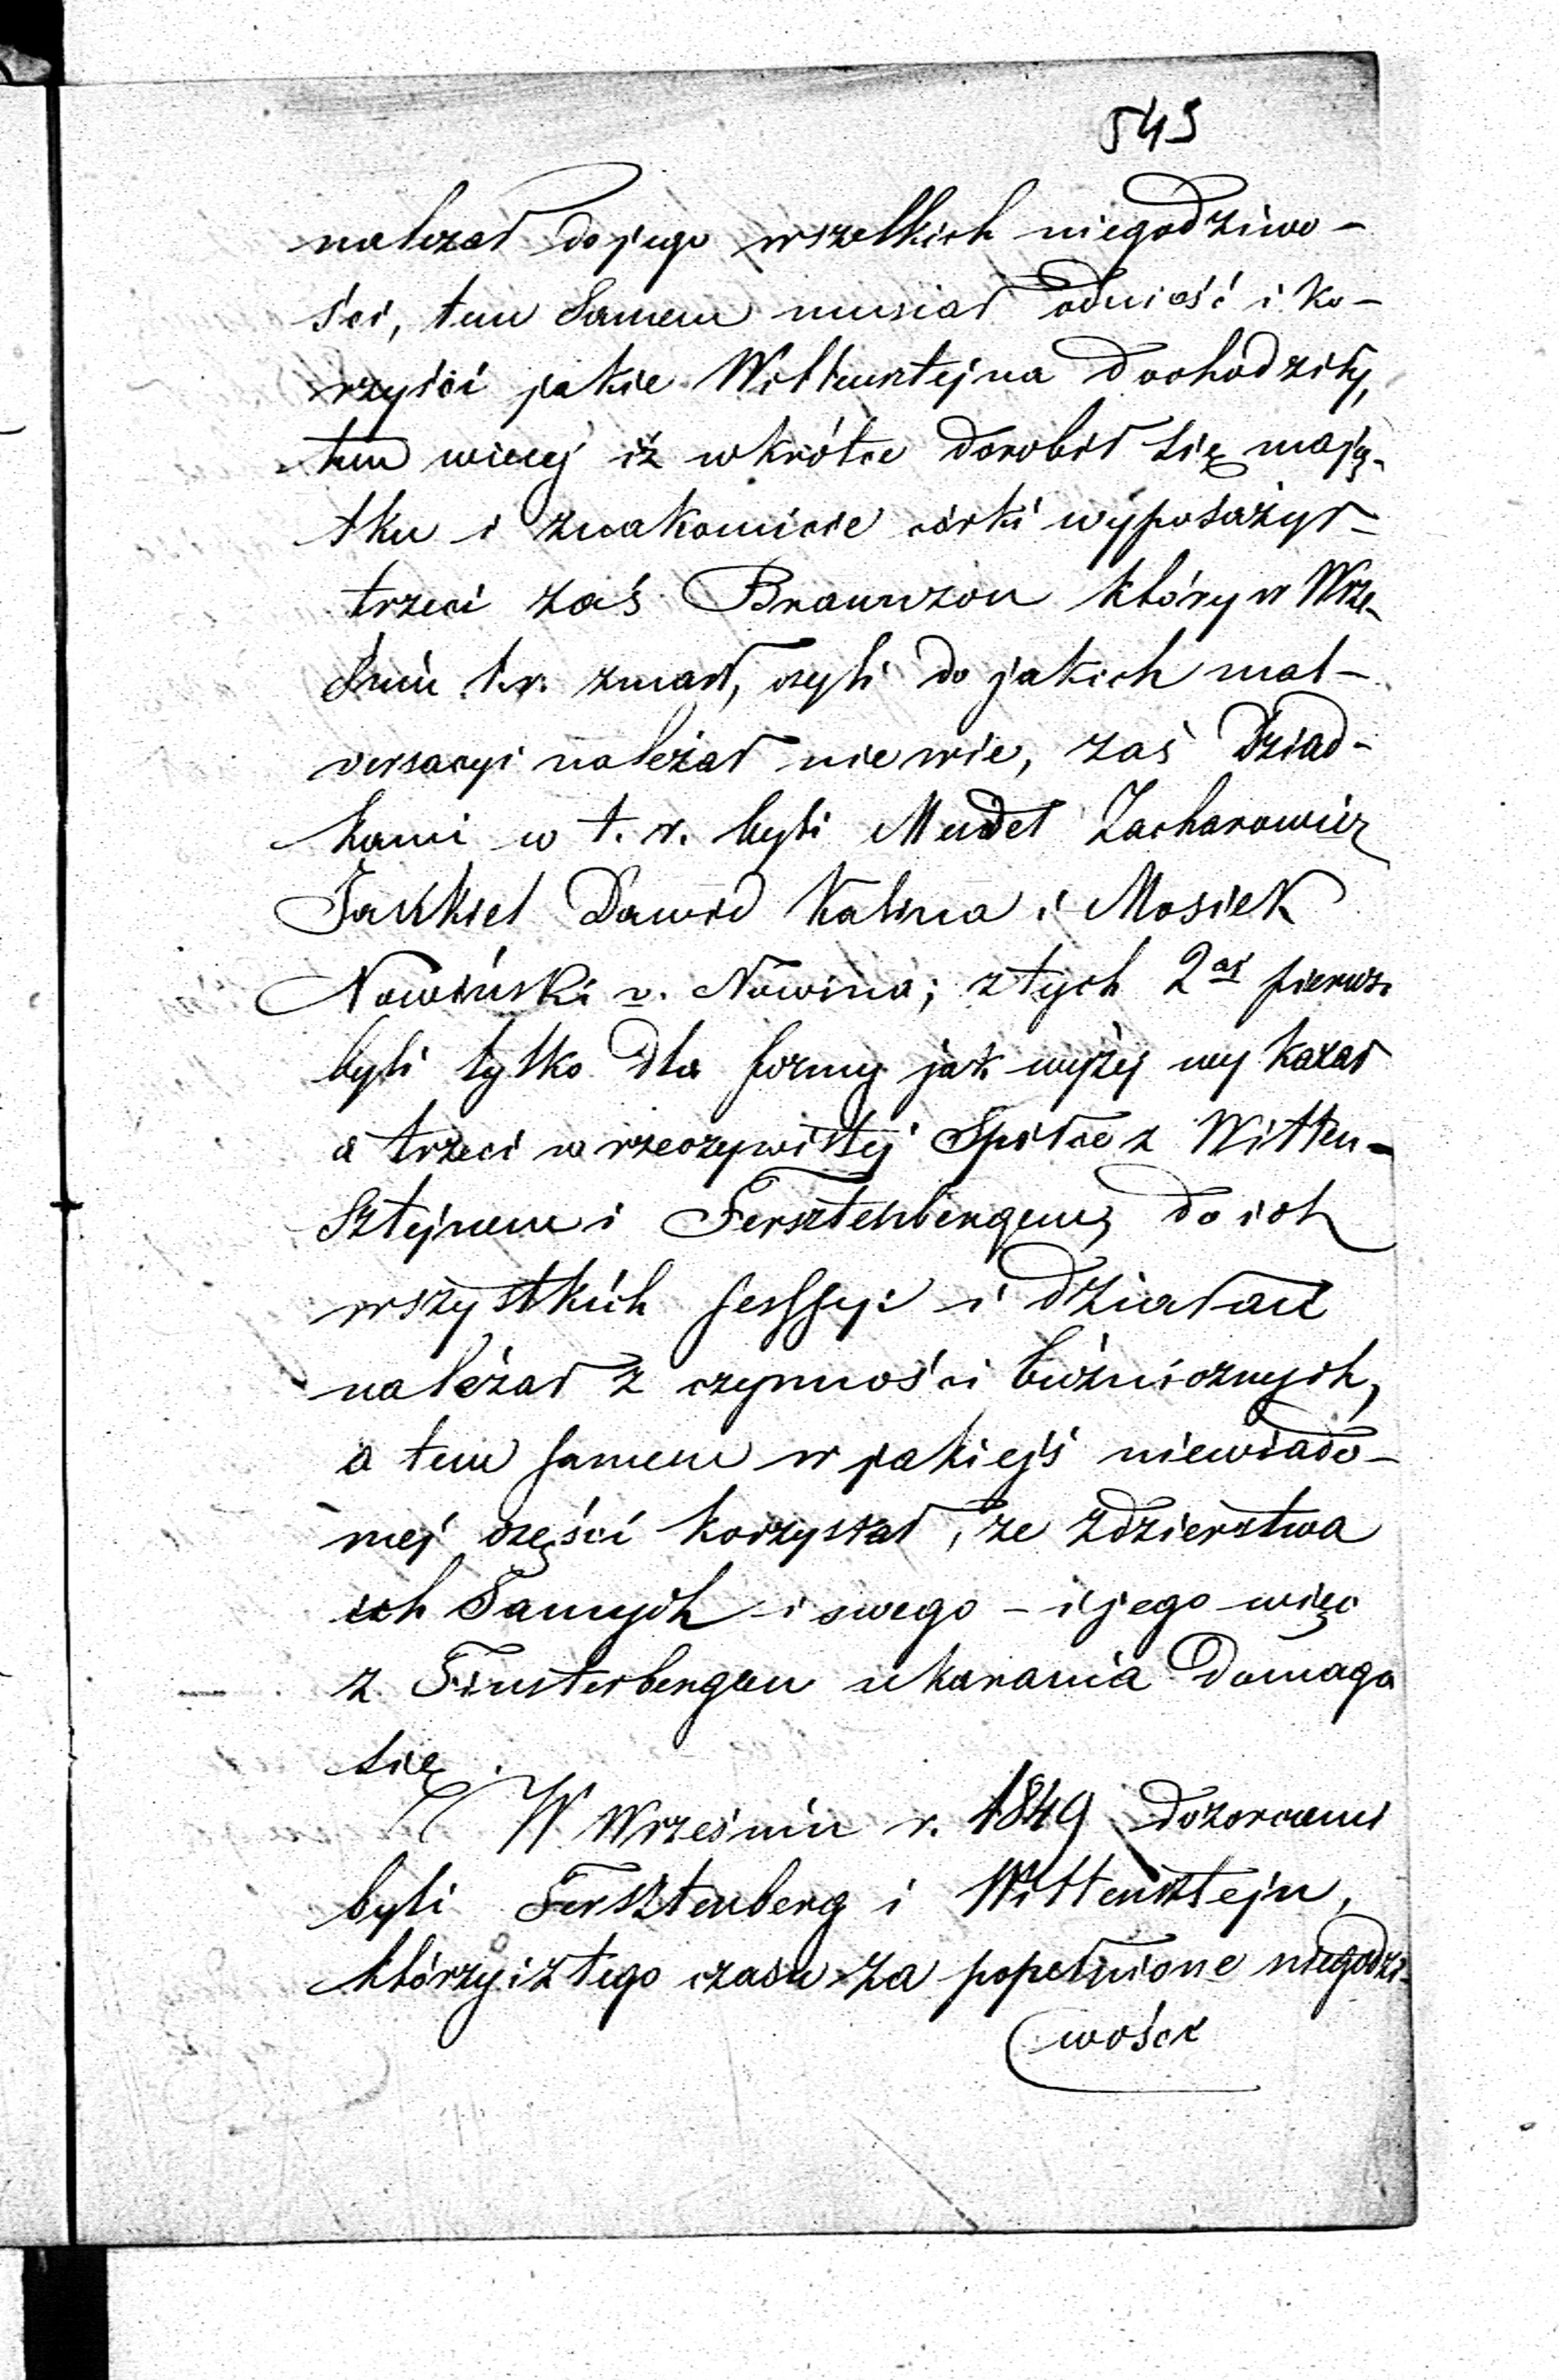 549
należał do jego wszelkich niegodziwo-
ści, tem Samem musiał odnieść i ko-
rzyści jakie Wittensztejna dochodziły,
tem więcej iż wkrótce dorobił się mają-
tku i znakomicie córki wyposażył -
trzeci zaś Braunzon który w Wrze-
śniu t.r. zmarł, czyli do jakich mal-
versacyi należał nie wie, zaś Dziad-
kami w t. r. byli Mendel Zacharowicz
Jankiel Dawid Kalina i Mosiek
Nowiński v. Nowina; z tych 2aj pierwsi
byli tylko dla formy jak wyżej wykazał
a trzeci w rzeczywistej Spółce z Witten-
Sztejnem i Fersztenbergem, do ich
wszystkich sessyi i działań
należał z czynności bużnicznych,
a tem samem w jakiejś niewiado-
mej części korzystał, ze zdzierstwa
ich Samych i swego - i jego więc
z Finsterbergem ukarania domaga
się.
W Wrześniu r. 1849 Dozorcami
byli Fersztenberg i Wittensztejn,
którzy i z tego czasu za popełnione niegodzi-
wości